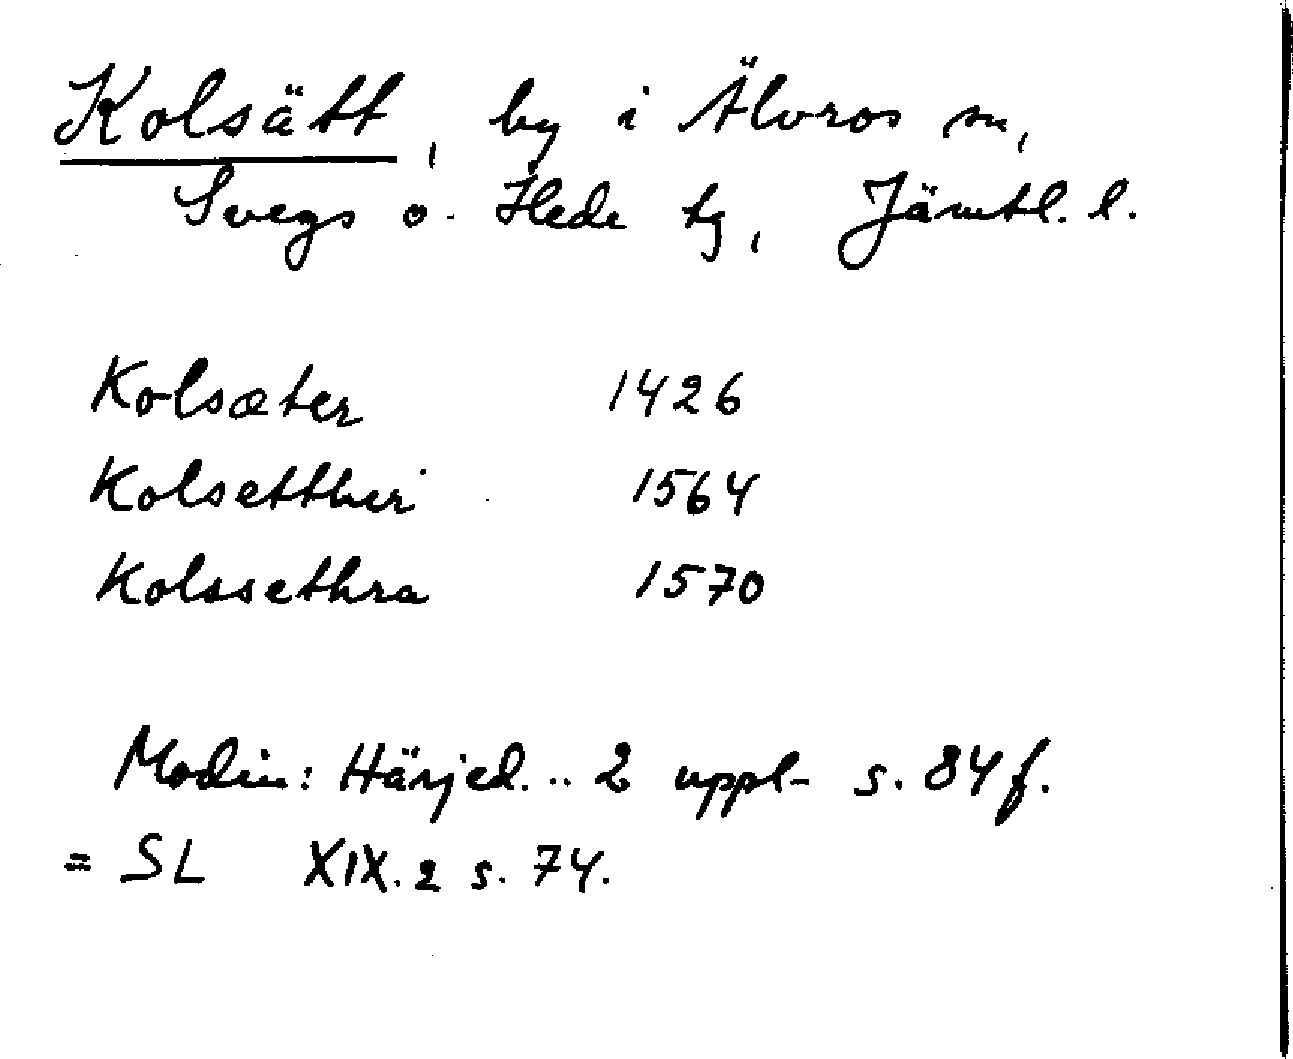 Kolsätt, by i Älvros sn,
Svegs o. Hede tg, Jämtl. l.
Kolsæter 1426
Kolsetther 1564
Kolssethra 1570
Modin: Härjed. .. 2 uppl. s. 84 f.
= SL XIX. 2 s. 74.